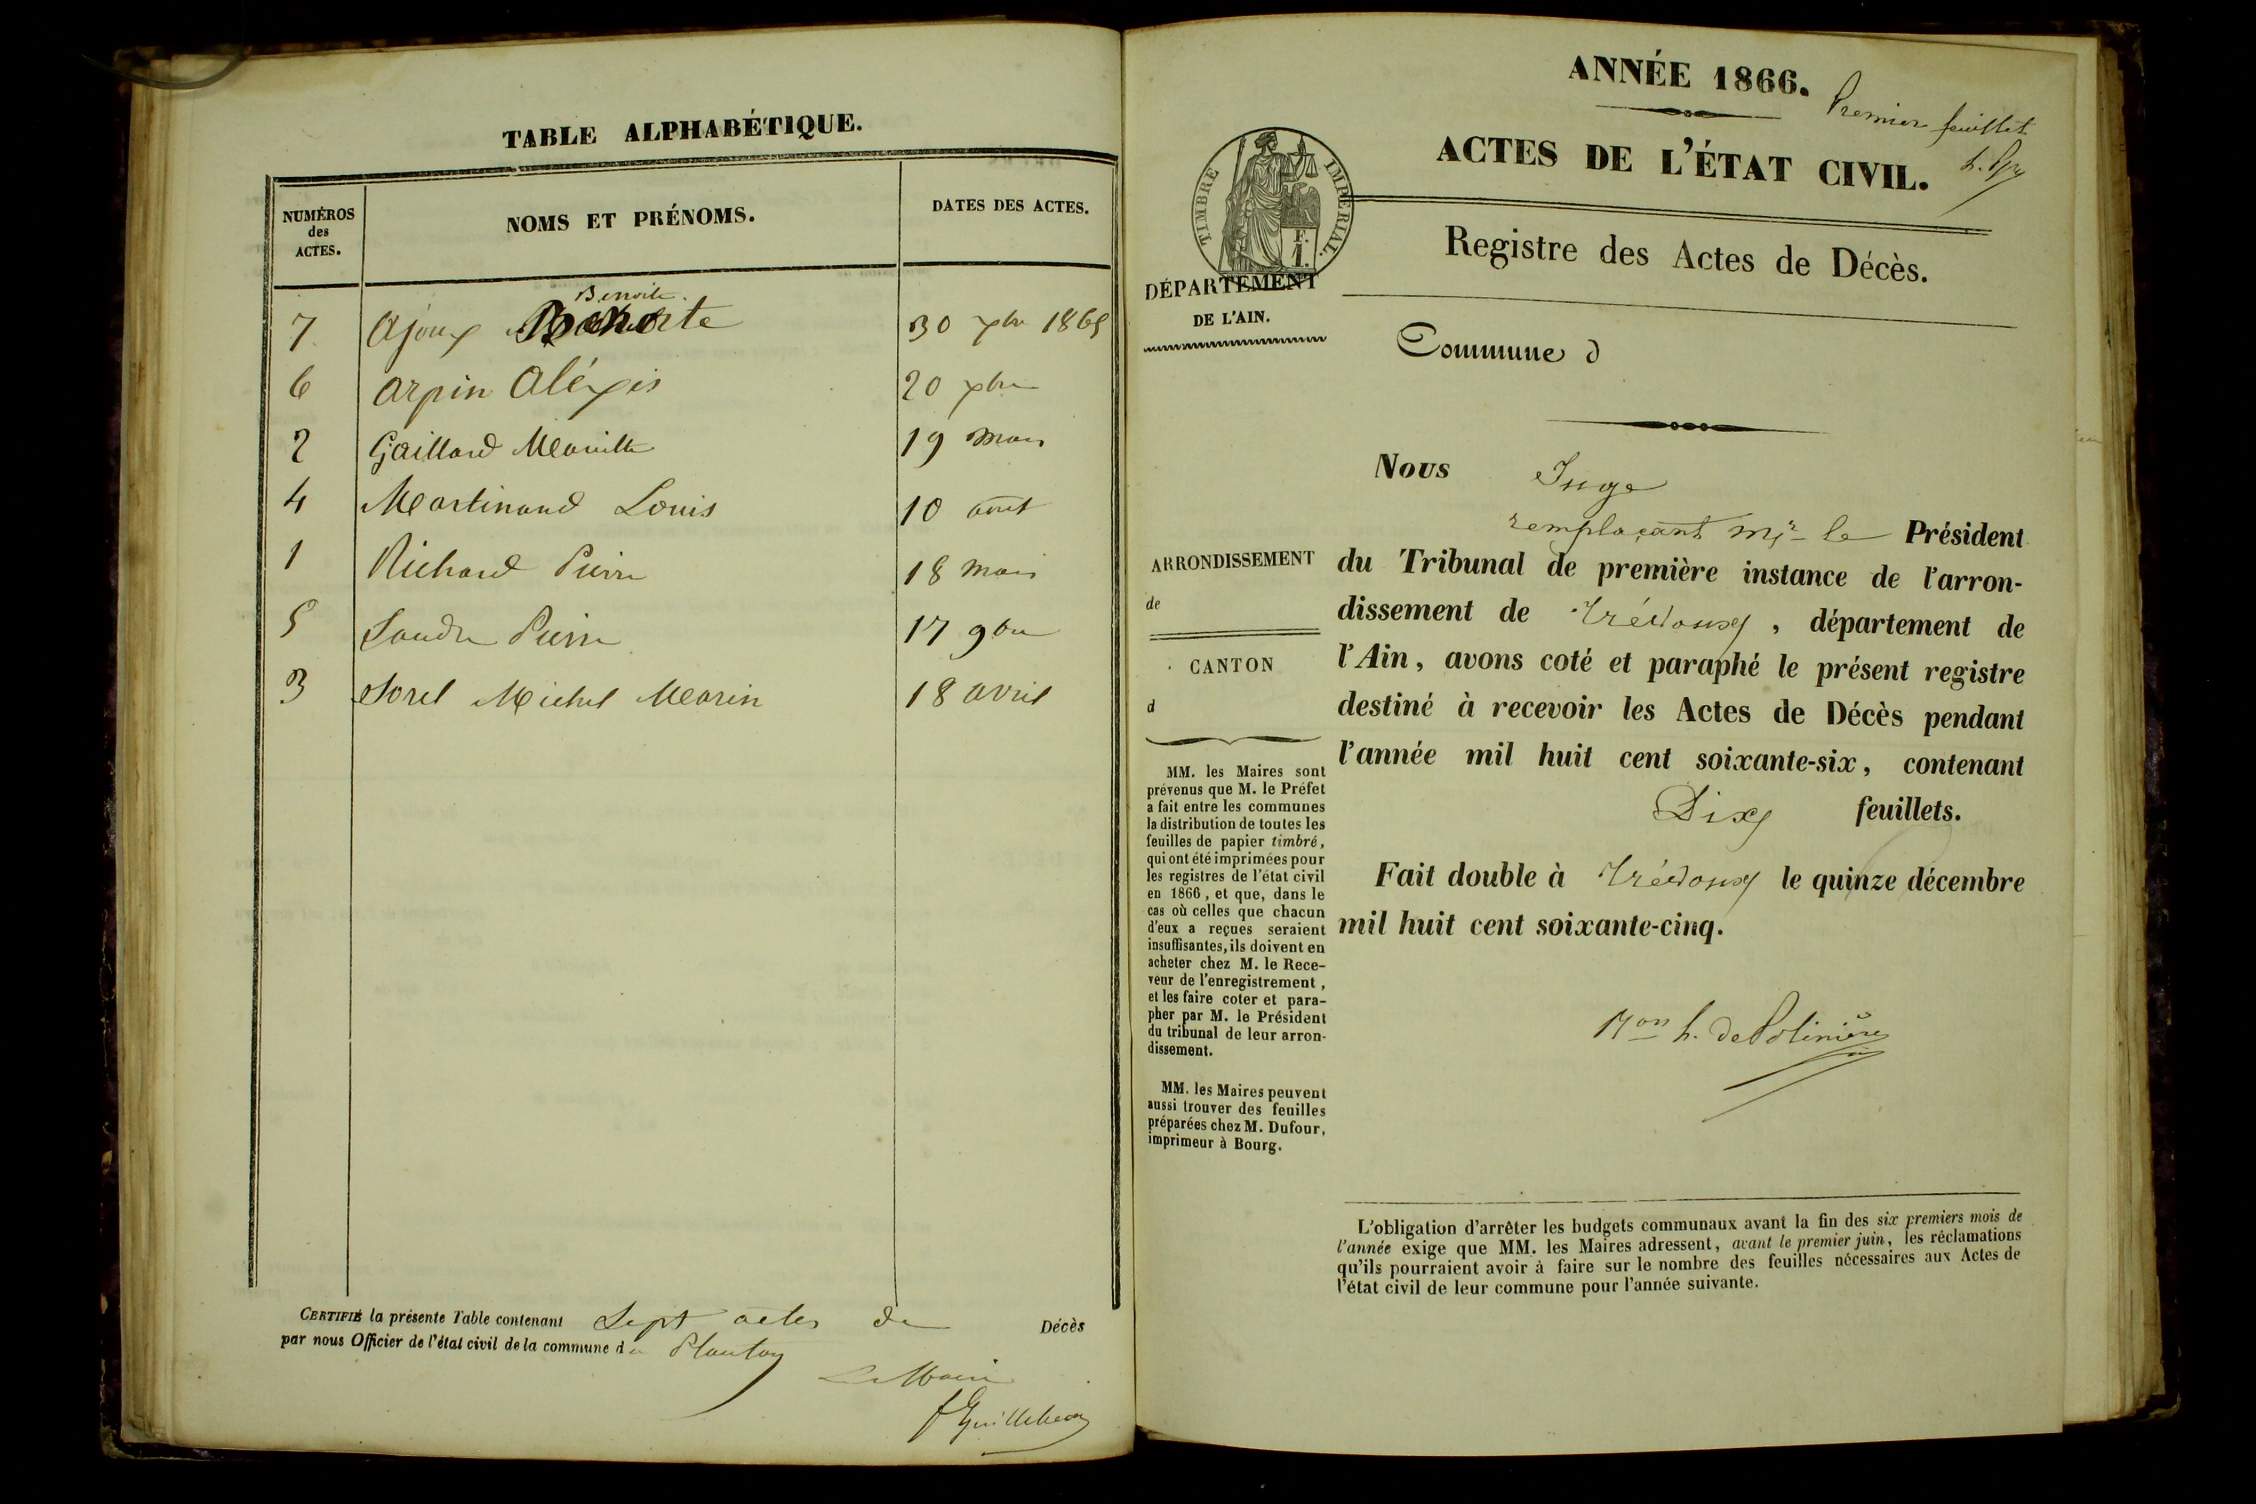 TABLE ALPHABÉTIQUE.
NUMÉROS
des
ACTES.
NOMS ET PRÉNOMS.
DATES DES ACTES.
Benoite
7 Ajoux Benoite 30 xbre 1865
6 Arpin Aléxis 20 xbre
2 Gaillard Mariette 19 mars
4 Martinand Louis 10 août
1 Richard Pierre 18 mars
5 Saudra Pierre 17 9bre
3 Sorel Michel Marin 18 avril
CERTIFIÉ la présente Table contenant Sept actes de Décès
par nous Officier de l'état civil de la commune du Plantay
Le Maire
ANNÉE 1866.
Premier feuillet
ACTES DE L'ÉTAT CIVIL.
TIMBRE IMPÉRIAL.
F.
1.
Registre des Actes de Décès.
DÉPARTEMENT
DE L'AIN.
Commune d
Nous Juge
remplaçant Mr le Président
du Tribunal de première instance de l'arron-
dissement de Trévoux, département de
l'Ain, avons coté et paraphé le présent registre
destiné à recevoir les Actes de Décès pendant
l'année mil huit cent soixante-six, contenant
Dix feuillets.
Fait double à Trévoux le quinze décembre
mil huit cent soixante-cinq.
h. de Polinière
ARRONDISSEMENT
de
CANTON
d
MM. les Maires sont
prévenus que M. le Préfet
a fait entre les communes
la distribution de toutes les
feuilles de papier timbré,
qui ont été imprimées pour
les registres de l'état civil
en 1866, et que, dans le
cas où celles que chacun
d'eux a reçues seraient
insuffisantes, ils doivent en
acheter chez M. le Rece-
veur de l'enregistrement,
et les faire coter et para-
pher par M. le Président
du tribunal de leur arron-
dissement.
MM. les Maires peuvent
aussi trouver des feuilles
préparées chez M. Dufour,
imprimeur à Bourg.
L'obligation d'arrêter les budgets communaux avant la fin des six premiers mois de
l'année exige que MM. les Maires adressent, avant le premier juin, les réclamations
qu'ils pourraient avoir à faire sur le nombre des feuilles nécessaires aux Actes de
l'état civil de leur commune pour l'année suivante.